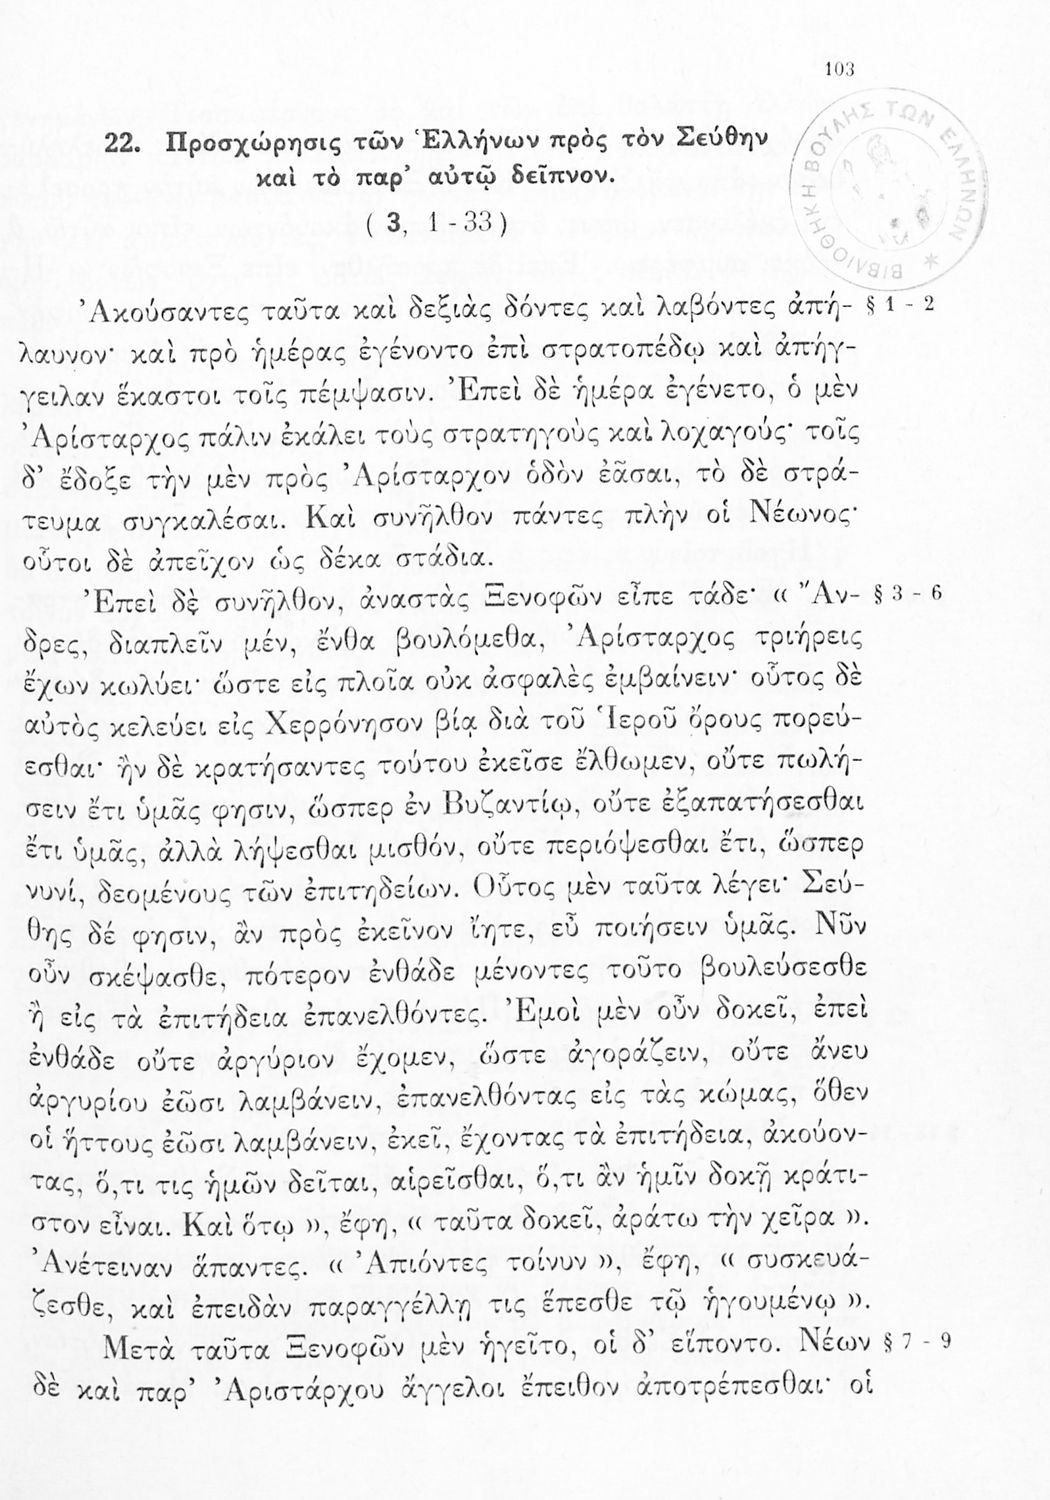 103
ΒΙΒΛΙΟΘΗΚΗ ΒΟΥΛΗΣ ΤΩΝ ΕΛΛΗΝΩΝ *
22. Προσχώρησις τῶν Ἑλλήνων πρὸς τὸν Σεύθην
καὶ τὸ παρ' αὐτῷ δεῖπνον.
( 3, 1 - 33 )
Ἀκούσαντες ταῦτα καὶ δεξιὰς δόντες καὶ λαβόντες ἀπή- § 1 - 2
λαυνον· καὶ πρὸ ἡμέρας ἐγένοντο ἐπὶ στρατοπέδῳ καὶ ἀπήγ-
γειλαν ἕκαστοι τοῖς πέμψασιν. Ἐπεὶ δὲ ἡμέρα ἐγένετο, ὁ μὲν
Ἀρίσταρχος πάλιν ἐκάλει τοὺς στρατηγοὺς καὶ λοχαγούς· τοῖς
δ' ἔδοξε τὴν μὲν πρὸς Ἀρίσταρχον ὁδὸν ἐᾶσαι, τὸ δὲ στρά-
τευμα συγκαλέσαι. Καὶ συνῆλθον πάντες πλὴν οἱ Νέωνος·
οὗτοι δὲ ἀπεῖχον ὡς δέκα στάδια.
Ἐπεὶ δὲ συνῆλθον, ἀναστὰς Ξενοφῶν εἶπε τάδε· « Ἄν- § 3 - 6
δρες, διαπλεῖν μέν, ἔνθα βουλόμεθα, Ἀρίσταρχος τριήρεις
ἔχων κωλύει· ὥστε εἰς πλοῖα οὐκ ἀσφαλὲς ἐμβαίνειν· οὗτος δὲ
αὐτὸς κελεύει εἰς Χερρόνησον βίᾳ διὰ τοῦ Ἱεροῦ ὄρους πορεύ-
εσθαι· ἢν δὲ κρατήσαντες τούτου ἐκεῖσε ἔλθωμεν, οὔτε πωλή-
σειν ἔτι ὑμᾶς φησιν, ὥσπερ ἐν Βυζαντίῳ, οὔτε ἐξαπατήσεσθαι
ἔτι ὑμᾶς, ἀλλὰ λήψεσθαι μισθόν, οὔτε περιόψεσθαι ἔτι, ὥσπερ
νυνί, δεομένους τῶν ἐπιτηδείων. Οὗτος μὲν ταῦτα λέγει· Σεύ-
θης δέ φησιν, ἂν πρὸς ἐκεῖνον ἴητε, εὖ ποιήσειν ὑμᾶς. Νῦν
οὖν σκέψασθε, πότερον ἐνθάδε μένοντες τοῦτο βουλεύσεσθε
ἢ εἰς τὰ ἐπιτήδεια ἐπανελθόντες. Ἐμοὶ μὲν οὖν δοκεῖ, ἐπεὶ
ἐνθάδε οὔτε ἀργύριον ἔχομεν, ὥστε ἀγοράζειν, οὔτε ἄνευ
ἀργυρίου ἐῶσι λαμβάνειν, ἐπανελθόντας εἰς τὰς κώμας, ὅθεν
οἱ ἥττους ἐῶσι λαμβάνειν, ἐκεῖ, ἔχοντας τὰ ἐπιτήδεια, ἀκούον-
τας, ὅ,τι τις ἡμῶν δεῖται, αἱρεῖσθαι, ὅ,τι ἂν ἡμῖν δοκῇ κράτι-
στον εἶναι. Καὶ ὅτῳ », ἔφη, « ταῦτα δοκεῖ, ἀράτω τὴν χεῖρα ».
Ἀνέτειναν ἅπαντες. « Ἀπιόντες τοίνυν », ἔφη, « συσκευά-
ζεσθε, καὶ ἐπειδὰν παραγγέλλῃ τις ἕπεσθε τῷ ἡγουμένῳ ».
Μετὰ ταῦτα Ξενοφῶν μὲν ἡγεῖτο, οἱ δ' εἵποντο. Νέων § 7 - 9
δὲ καὶ παρ' Ἀριστάρχου ἄγγελοι ἔπειθον ἀποτρέπεσθαι· οἱ